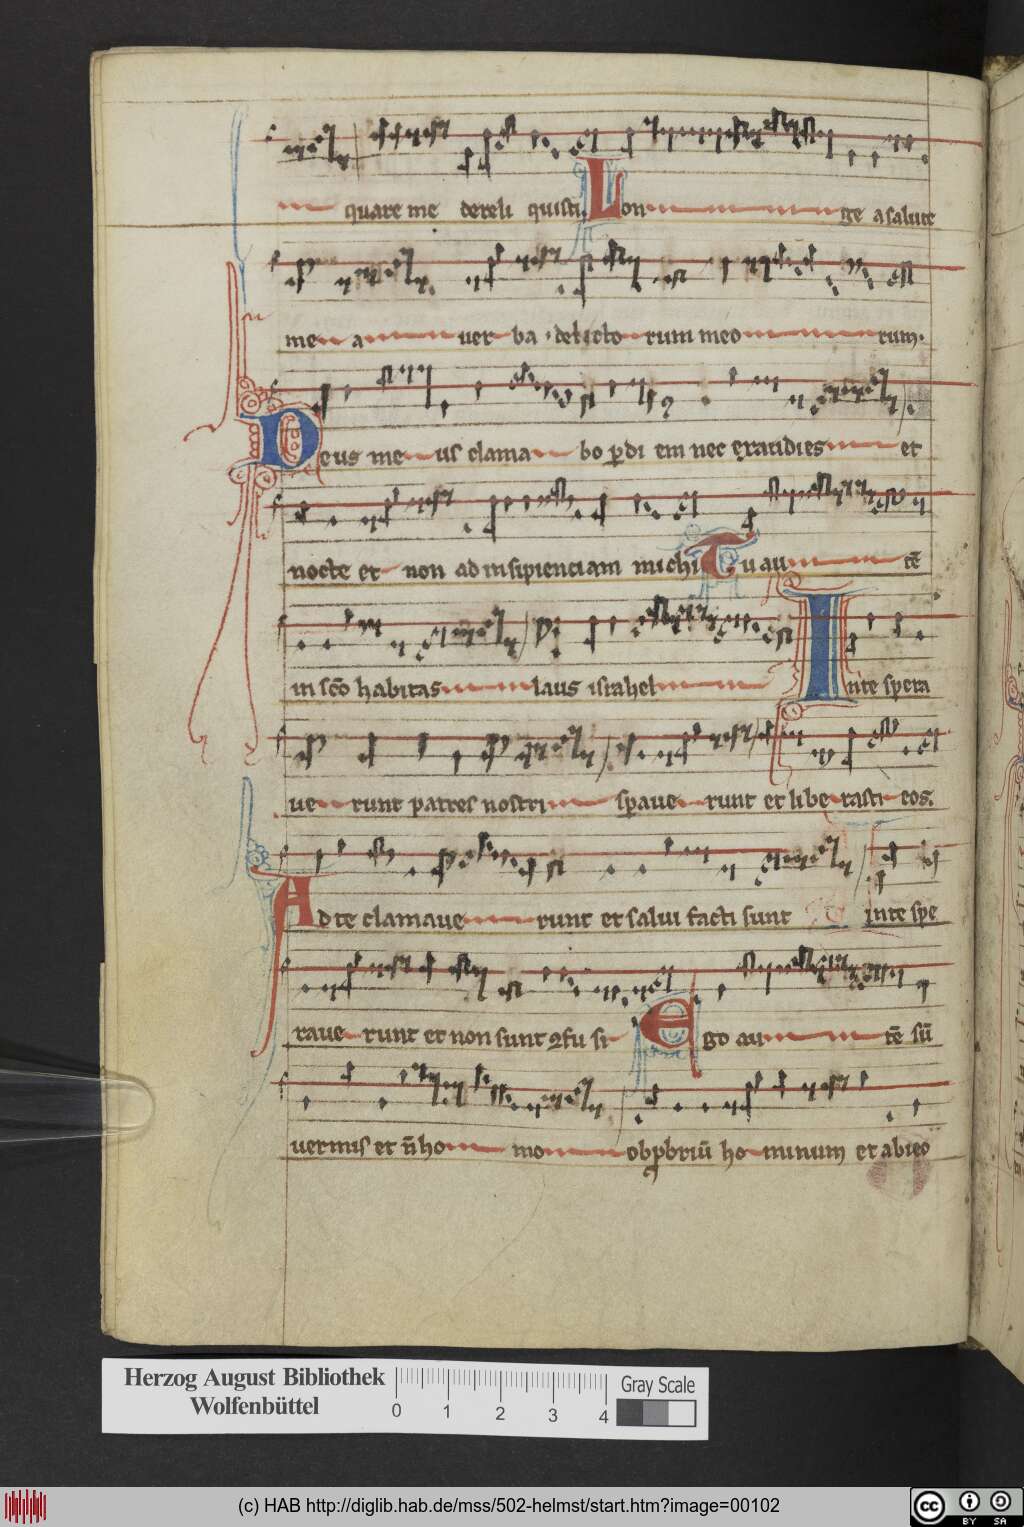 quare me dereliquisti. Lon ge a salute
me a ver ba delicto rum meo rum.
Deus me us clama bo p di em nec exaudies et
nocte et non ad insipienciam michi Tu au tē
in scō habitas laus israhel In te spera
ve runt patres nostri spave runt et libe rasti eos.
Ad te clamave runt et salvi facti sunt in te spe
rave runt et non sunt ꝯfu si Ego au tē sū
vermis et n̄ ho mo obpbriū ho minum et abieo
Herzog August Bibliothek
Wolfenbüttel
0 1 2 3 4
Gray Scale
(c) HAB http://diglib.hab.de/mss/502-helmst/start.htm?image=00102
cc BY SA